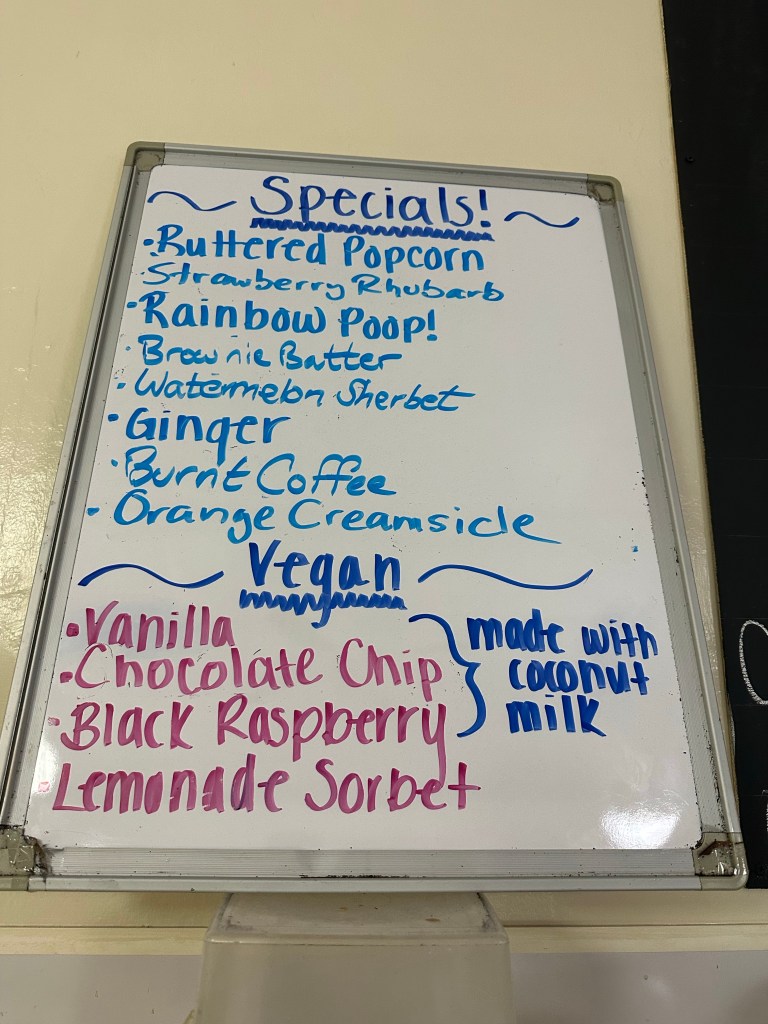 ~ Specials! ~
• Buttered Popcorn
Strawberry Rhubarb
• Rainbow Poop!
• Brownie Batter
• Watermelon Sherbet
• Ginger
• Burnt Coffee
• Orange Creamsicle
~ Vegan ~
• Vanilla
• Chocolate Chip
• Black Raspberry
} made with
coconut
milk
• Lemonade Sorbet